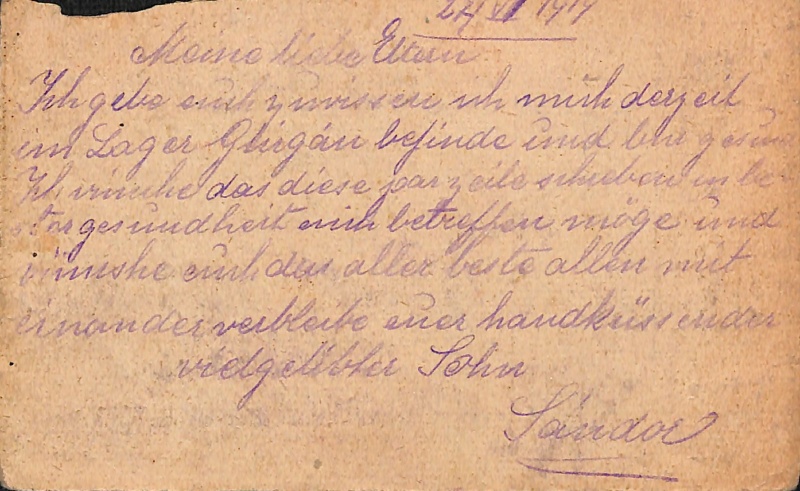 24 VI 1917
Meine liebe Eltern
Ich gebe euch zu wissen ich mich derzeit
im Lager Gurgán befinde und bin gesund
Ich wünche das diese par zeile schreben in be-
ster gesundheit euch betreffen möge und
wünshe euch das aller beste allen mit
einander verbleibe euer handküssender
vielgelibter Sohn
Sándor